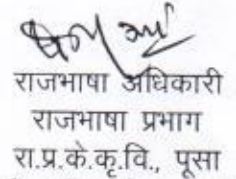 राजभाषा अधिकारी
राजभाषा प्रभाग
रा.प्र.के.कृ.वि., पूसा